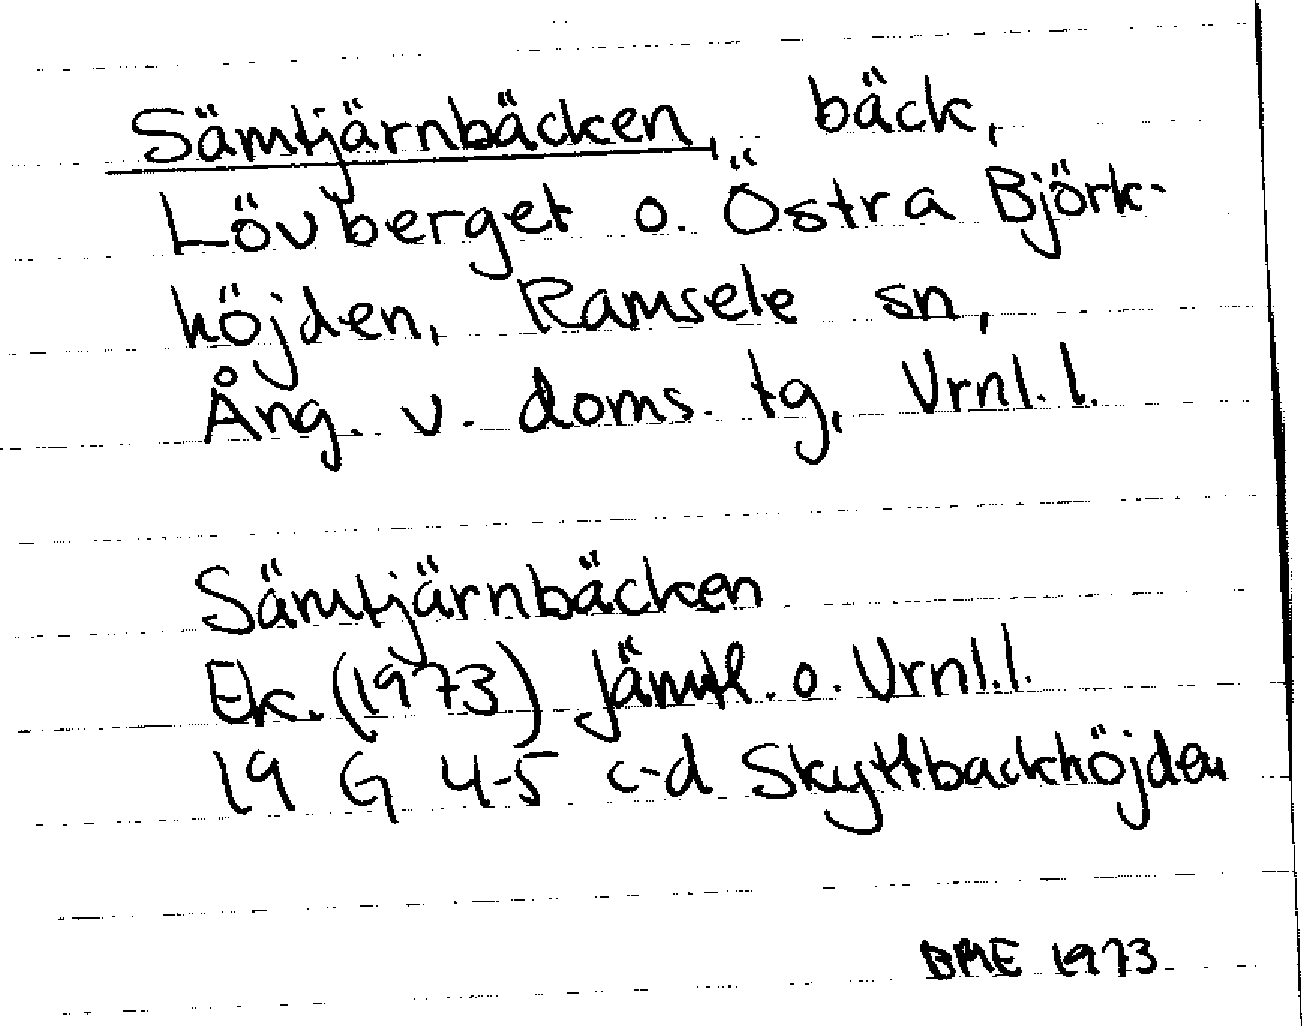 Sämtjärnbäcken, bäck,
Lövberget o. Östra Björk-
höjden, Ramsele sn,
Ång. v. doms. tg, Vrnl. l.
Sämtjärnbäcken
Ek. (1973) Jämtl. o. Vrnl. l.
19 G 4-5 c-d Skyttbackhöjden
BME 1973